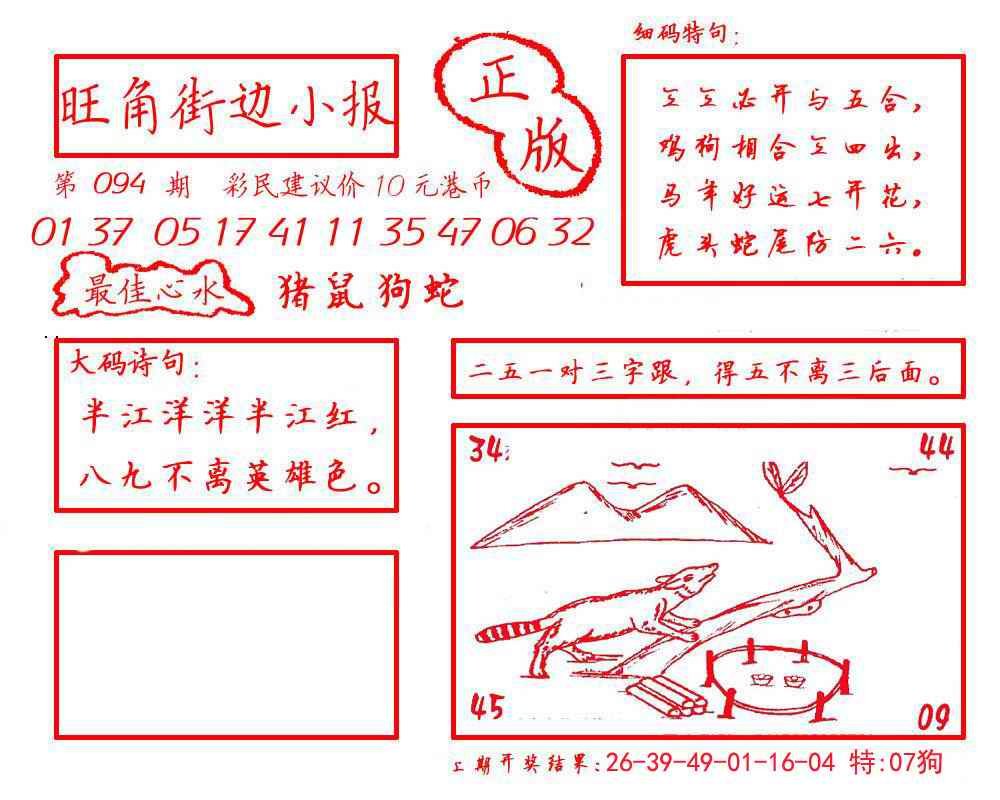 旺角街边小报
正版
第 094 期 彩民建议价 10 元港币
01 37 05 17 41 11 35 47 06 32
最佳心水 猪鼠狗蛇
细码特句:
必开与五合,
鸡狗相合 四出,
马年好运七开花,
虎头蛇尾防二六。
大码诗句:
半江洋洋半江红,
八九不离英雄色。
二五一对三字跟,得五不离三后面。
34
44
45
09
上期开奖结果:26-39-49-01-16-04 特:07狗